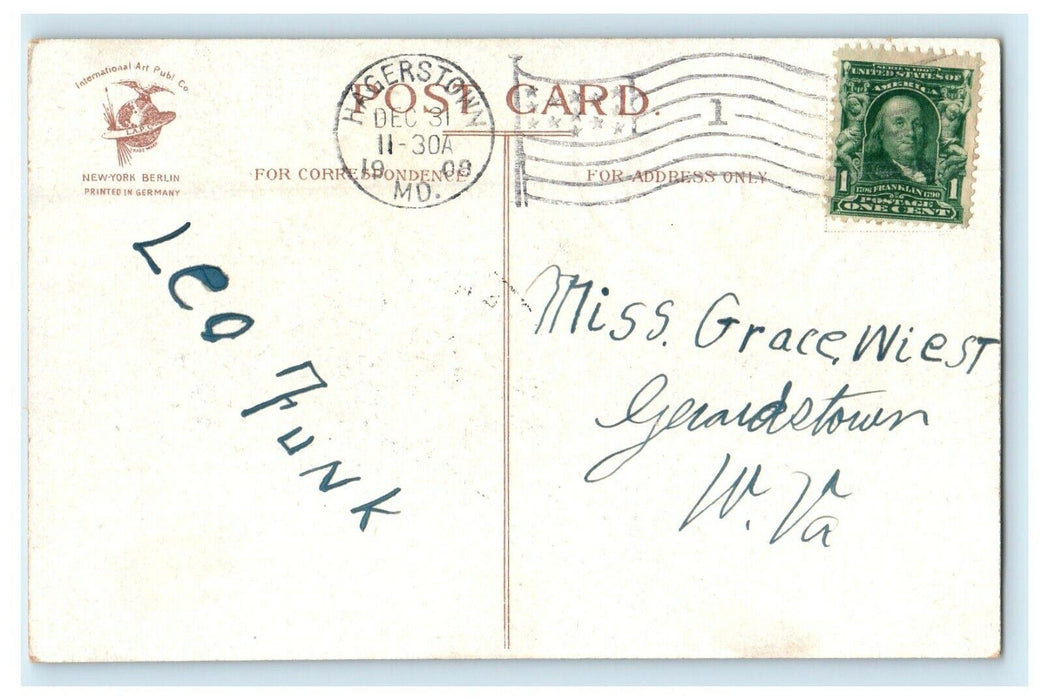 International Art Publ. Co.
I.A.P.C.
NEW-YORK BERLIN
PRINTED IN GERMANY
POST CARD.
FOR CORRESPONDENCE
FOR ADDRESS ONLY
HAGERSTOWN
DEC 31
11-30A
1909
MD.
1
SERIES 1902
UNITED STATES OF
AMERICA
1706 FRANKLIN 1790
1 1
POSTAGE
ONE CENT
Leo Funk
Miss. Grace Wiest
Gerardstown
W. Va